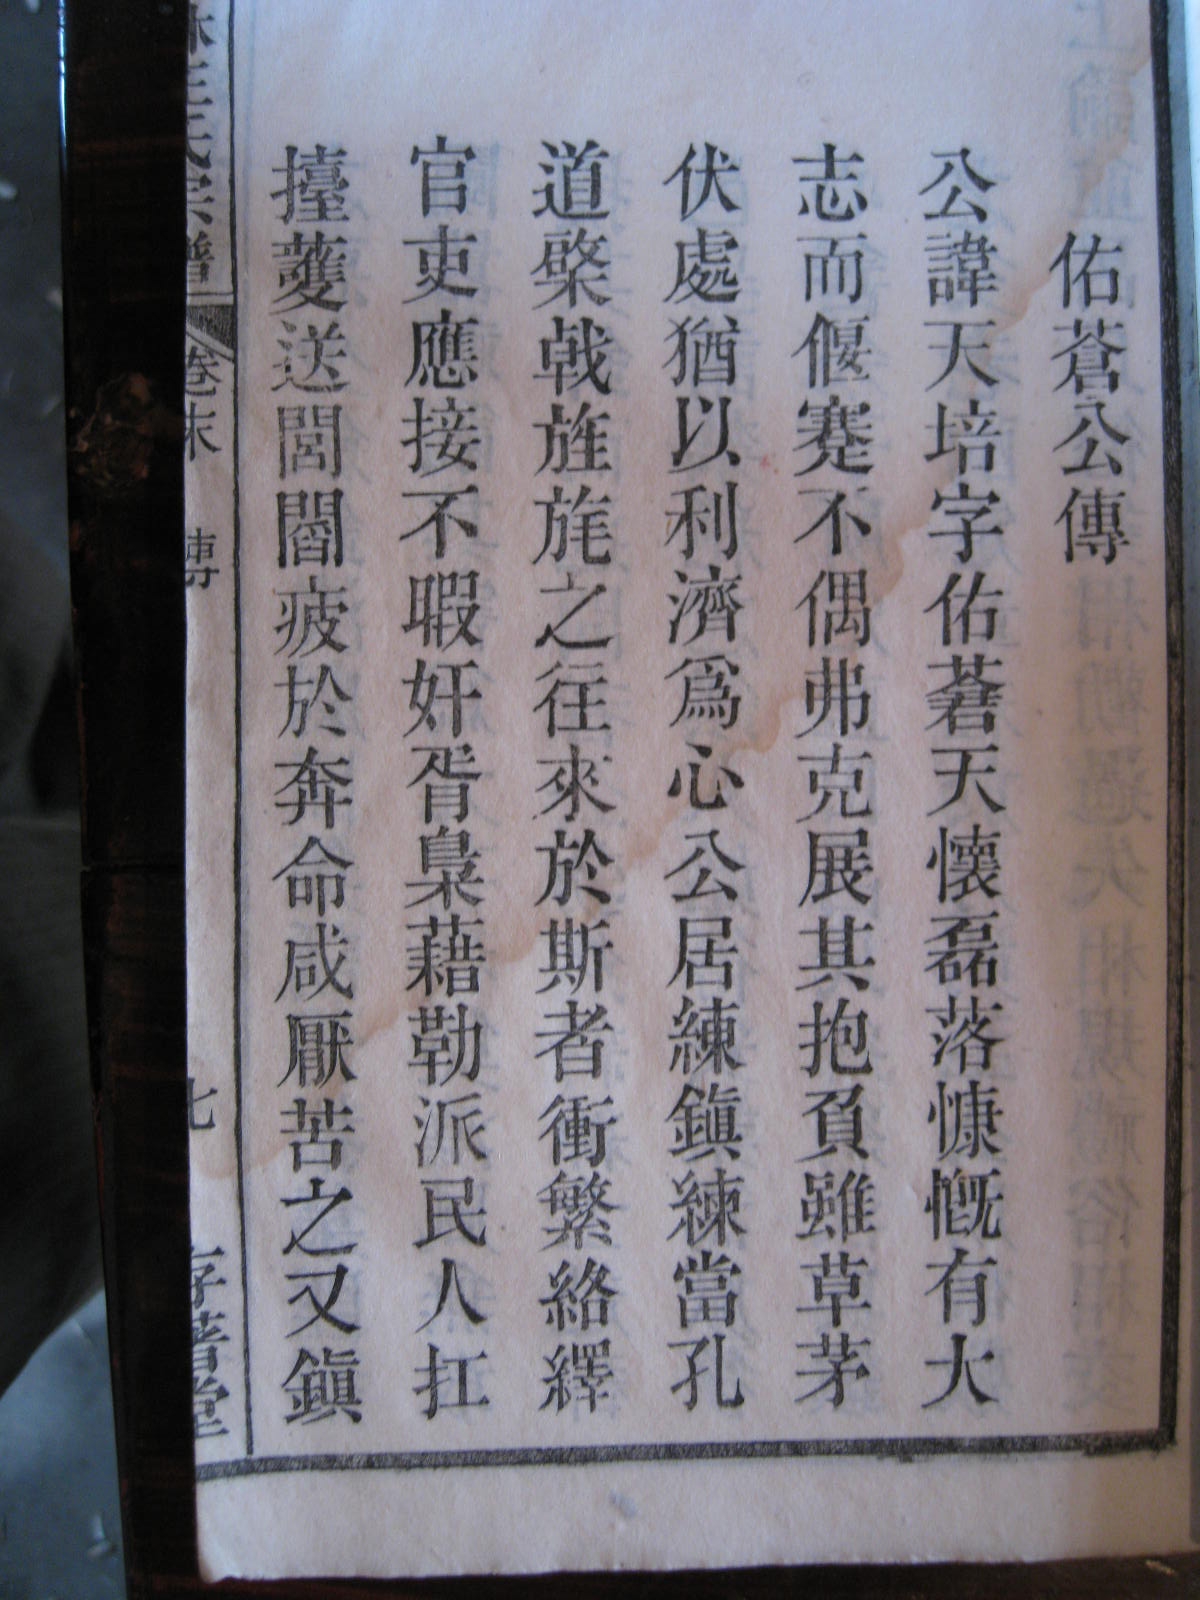 佑蒼公傳
公諱天培字佑蒼天懷磊落慷慨有大
志而偃蹇不偶弗克展其抱負雖草茅
伏處猶以利濟為心公居練鎮練當孔
道棨戟旌旄之往來於斯者衝繁絡繹
官吏應接不暇奸胥梟藉勒派民人扛
擡護送閭閻疲於奔命咸厭苦之又鎮
王氏宗譜
卷末
傳
七
存著堂